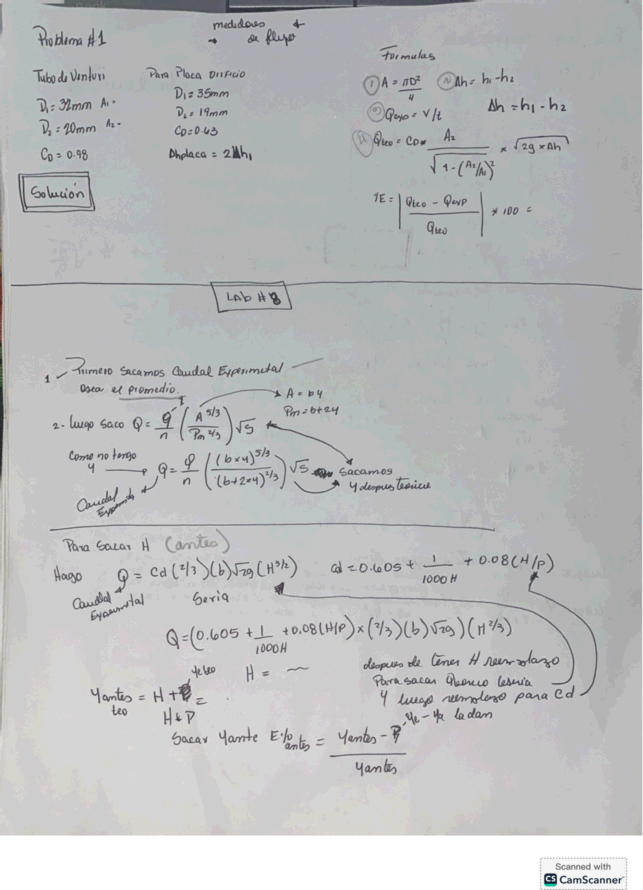 Problema #1
medidores
de flujo
Tubo de Venturi
D₁ = 32mm A₁ -
D₂ = 20mm A₂ -
C_D = 0.98
Solución
Para Placa Orificio
D₁ = 35mm
D₂ = 19mm
C_D = 0.63
Δhplaca = 2Δh₁
Formulas
① A = πD²/4 ② Δh = h₁ - h₂
Δh = h₁ - h₂
③ Qexp = V/t
Qteo = CD * A₂ / √(1 - (A₂/A₁)²) * √(2g * Δh)
%E = | (Qteo - Qexp) / Qteo | * 100 =
LAb # 8
1 Primero Sacamos Caudal Experimetal
Osea el promedio.
2- luego saco Q = φ/n (A^5/3 / Pm^2/3) √S
A = b y
Pm = b + 2y
Como no tengo
y
Q = φ/n ((b x y)^5/3 / (b + 2 x y)^2/3) √S
Sacamos
y despues teorico
Caudal
Experimental
Para Sacar H (antes)
Hago Q = Cd (2/3) (b) √2g (H^3/2) cd = 0.605 + 1/1000H + 0.08 (H/P)
Caudal
Experimetal
Seria
Q = (0.605 + 1/1000H + 0.08 (H/P) x (2/3) (b) √2g) (H^2/3)
H = ~
despues de tener H reemplazo
Para sacar
y luego reemplazo para Cd
Yantes = H +
teo
H + P
Sacar Yante E%antes = Yantes -
Yantes
la dan
Scanned with
CS CamScanner